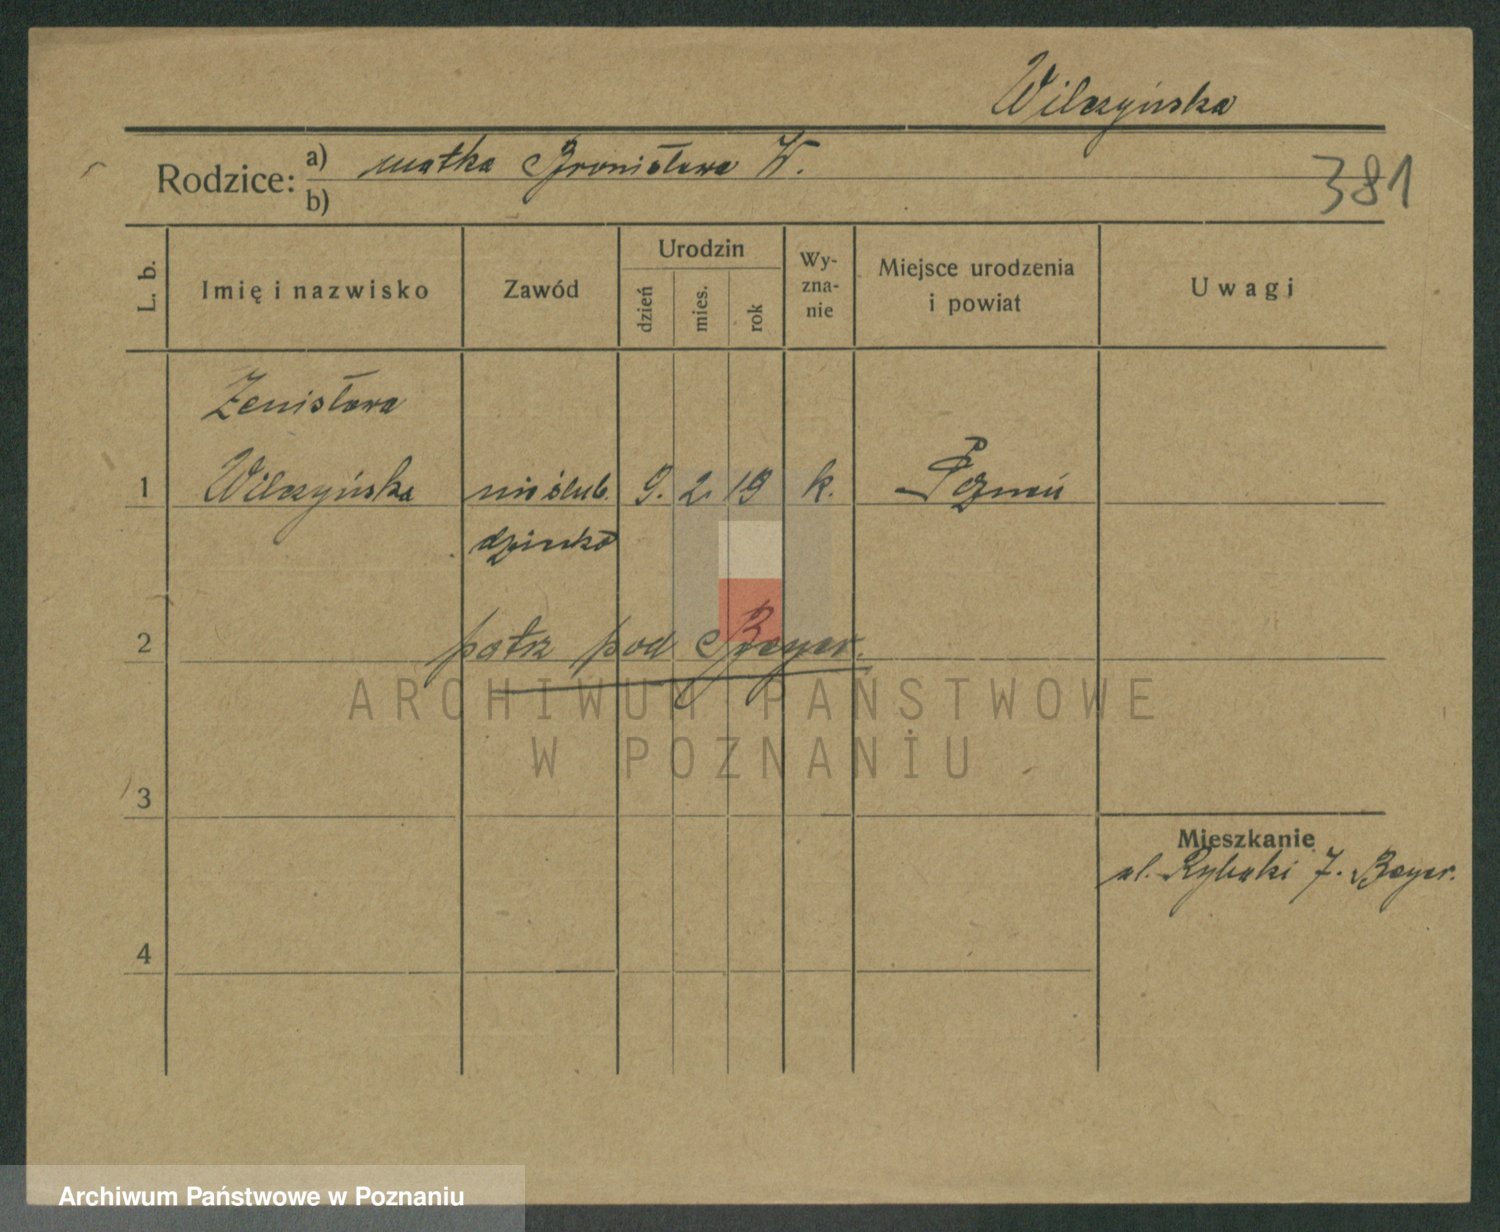 Wilczyńska
Rodzice: a) matka Bronisława W.
b)
381
L. b.
Imię i nazwisko
Zawód
Urodzin
dzień
mies.
rok
Wy-
zna-
nie
Miejsce urodzenia
i powiat
Uwagi
Zenisława
1 Wilczyńska nieślub. 9. 2. 19 k. Poznań
dziecko
2 patrz pod Beyer.
ARCHIWUM PAŃSTWOWE
W POZNANIU
3
Mieszkanie
ul. Rybaki 7. Beyer.
4
Archiwum Państwowe w Poznaniu